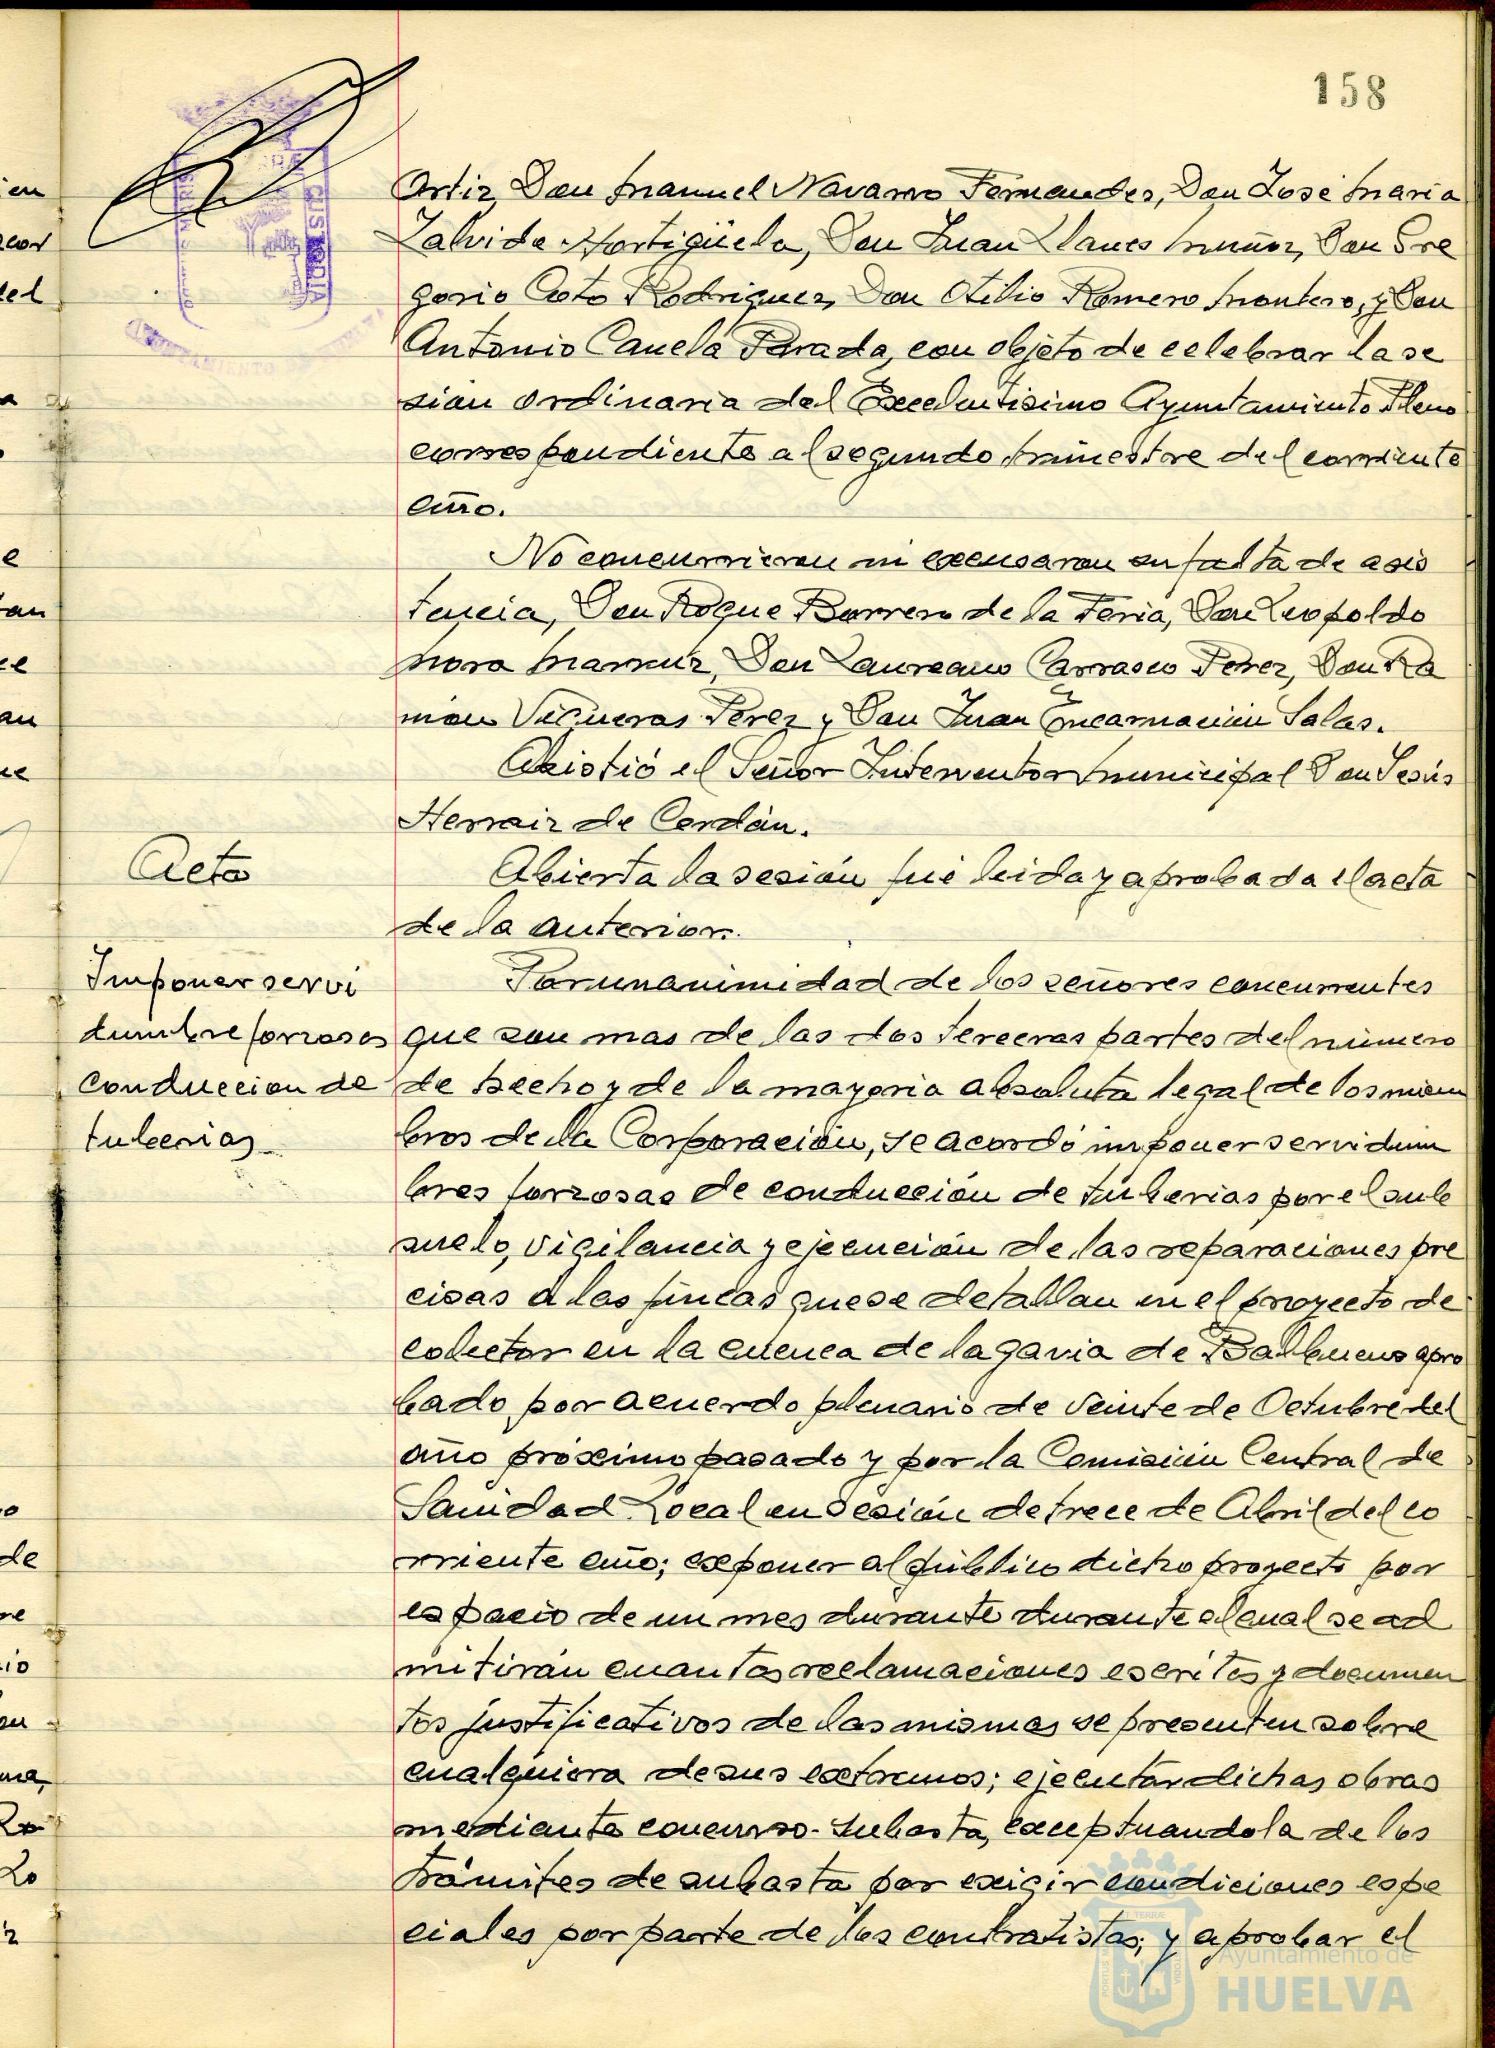 158
Ortiz, Don Manuel Navarro Fernandez, Don José Maria
Zalvide Hortigüela, Don Juan Llanes Muñoz, Don Gre
gorio Coto Rodriguez, Don Otilio Romero Montero, y Don
Antonio Canela Parada, con objeto de celebrar la se
sion ordinaria del Excelentisimo Ayuntamiento Pleno
correspondiente al segundo trimestre del corriente
año.
No concurrieron ni excusaron su falta de asis
tencia, Don Roque Barrero de la Feria, Don Leopoldo
Mora Marruz, Don Laureano Carrasco Perez, Don Ra
mon Vigueras Perez y Don Juan Encarnación Salas.
Asistió el Señor Interventor Municipal Don Jesús
Herraiz de Cerdán.
Acta
Abierta la sesión fué leida y aprobada el acta
de la anterior.
Imponer servi
dumbre forzosas
conduccion de
tuberias
Por unanimidad de los señores concurrentes
que son mas de las dos terceras partes del número
de hecho y de la mayoria absoluta legal de los miem
bros de la Corporación, se acordó imponer servidum
bres forzosas de conducción de tuberias por el sub
suelo, vigilancia y ejecución de las reparaciones pre
cisas a las fincas que se detallan en el proyecto de
colector en la cuenca de la gavia de Balbuena apro
bado por acuerdo plenario de veinte de Octubre del
año próximo pasado y por la Comisión Central de
Sanidad Local en sesión de trece de Abril del co
rriente año; exponer al público dicho proyecto por
espacio de un mes durante durante el cual se ad
mitirán cuantas reclamaciones escritas y documen
tos justificativos de las mismas se presenten sobre
cualquiera de sus extremos; ejecutar dichas obras
mediante concurso-subasta, exceptuandola de los
trámites de subasta por exigir condiciones espe
ciales por parte de los contratistas; y aprobar el
Ayuntamiento de
HUELVA